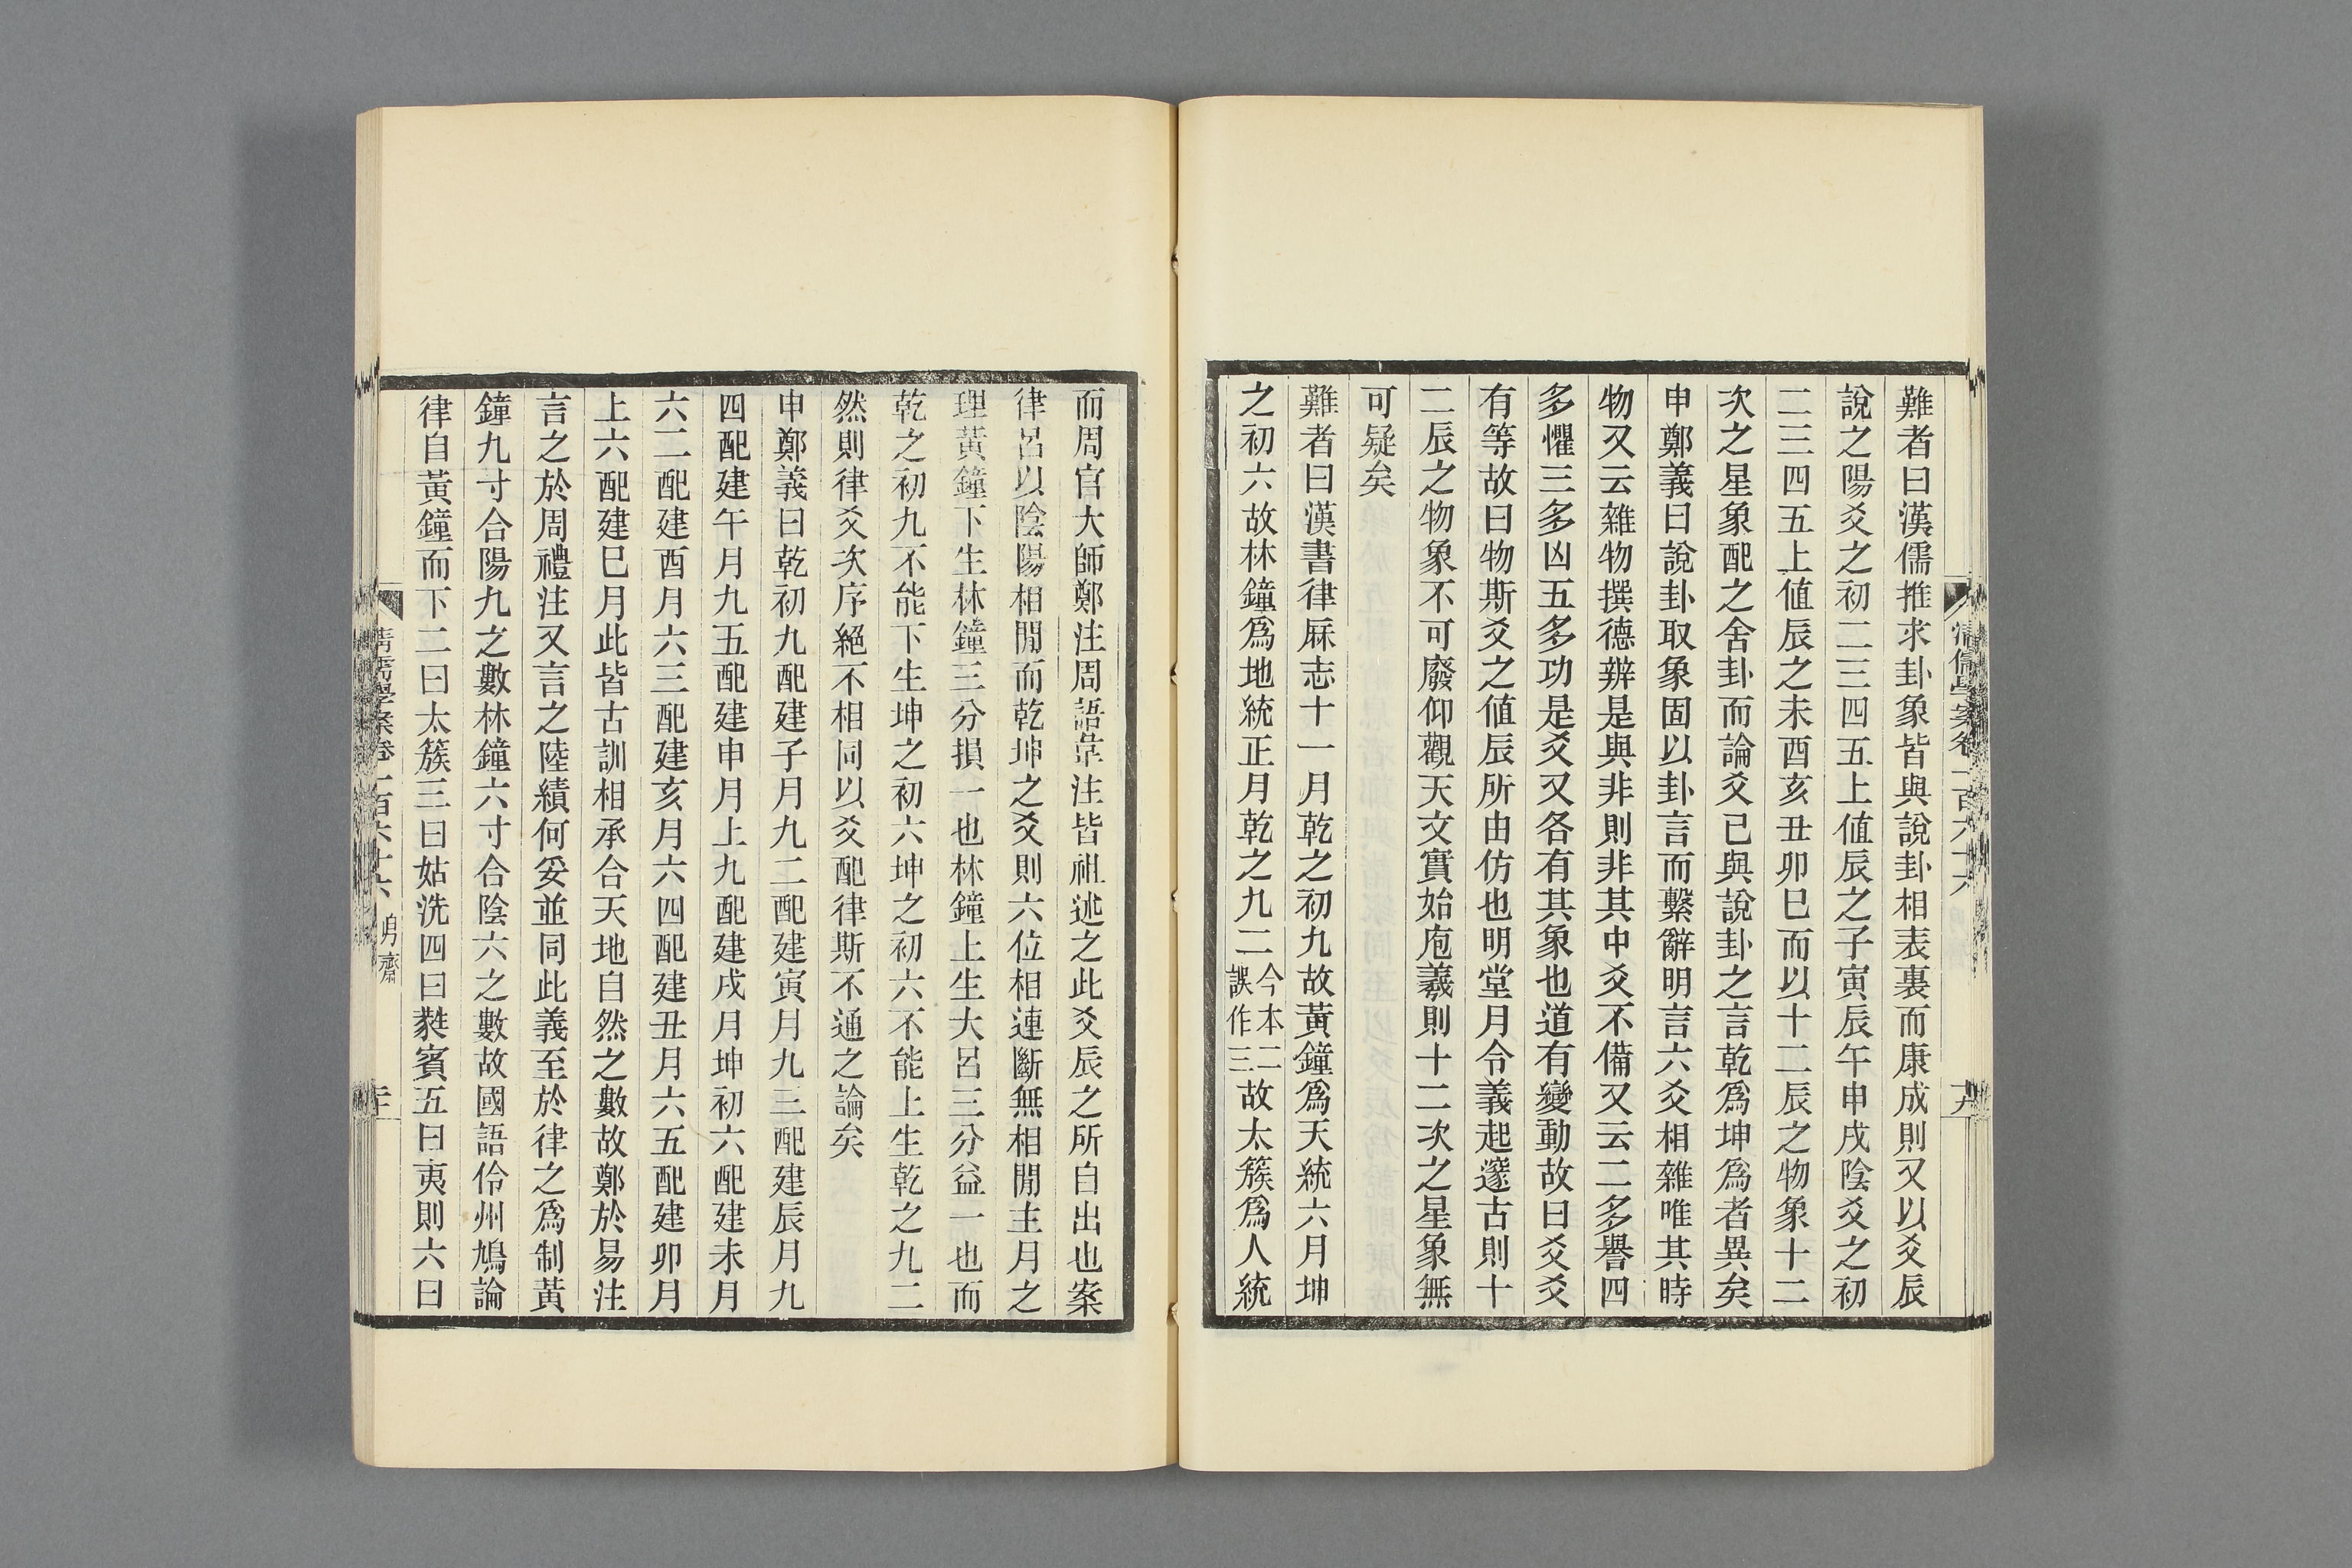 難者曰漢儒推求卦象皆與說卦相表裏而康成則又以爻辰
說之陽爻之初二三四五上值辰之子寅辰午申戌陰爻之初
二三四五上值辰之未酉亥丑卯巳而以十二辰之物象十二
次之星象配之舍卦而論爻已與說卦之言乾爲坤爲者異矣
申鄭義曰說卦取象固以卦言而繫辭明言六爻相雜唯其時
物又云雜物撰德辨是與非則非其中爻不備又云二多譽四
多懼三多凶五多功是爻又各有其象也道有變動故曰爻爻
有等故曰物斯爻之值辰所由仿也明堂月令義起邃古則十
二辰之物象不可廢仰觀天文實始庖羲則十二次之星象無
可疑矣
難者曰漢書律厤志十一月乾之初九故黃鐘爲天統六月坤
之初六故林鐘爲地統正月乾之九二今本二誤作三故太簇爲人統
清儒學案卷一百六十六
十九
而周官大師鄭注周語韋注皆祖述之此爻辰之所自出也案
律呂以陰陽相閒而乾坤之爻則六位相連斷無相閒主月之
理黃鐘下生林鐘三分損一也林鐘上生大呂三分益一也而
乾之初九不能下生坤之初六坤之初六不能上生乾之九二
然則律爻次序絕不相同以爻配律斯不通之論矣
申鄭義曰乾初九配建子月九二配建寅月九三配建辰月九
四配建午月九五配建申月上九配建戌月坤初六配建未月
六二配建酉月六三配建亥月六四配建丑月六五配建卯月
上六配建巳月此皆古訓相承合天地自然之數故鄭於易注
言之於周禮注又言之陸績何妥並同此義至於律之爲制黃
鐘九寸合陽九之數林鐘六寸合陰六之數故國語伶州鳩論
律自黃鐘而下二曰太簇三曰姑洗四曰蕤賓五曰夷則六曰
清儒學案卷一百六十六